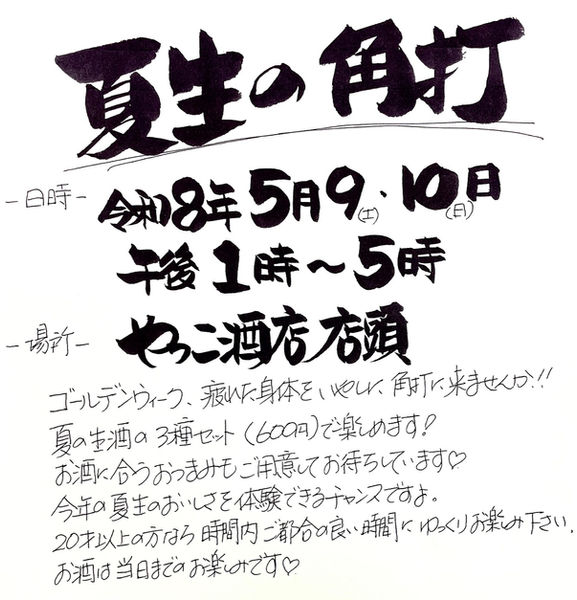 夏生の角打
-日時-
令和8年5月9(土)・10(日)日
午後1時～5時
-場所-
やっこ酒店 店頭
ゴールデンウィーク、疲れた身体をいやしに角打に来ませんか!!
夏の生酒の3種セット(600円)で楽しめます!
お酒に合うおつまみもご用意してお待ちしています♡
今年の夏生のおいしさを体験できるチャンスですよ。
20才以上の方なら時間内ご都合の良い時間にゆっくりお楽しみ下さい。
お酒は当日までのお楽しみです♡